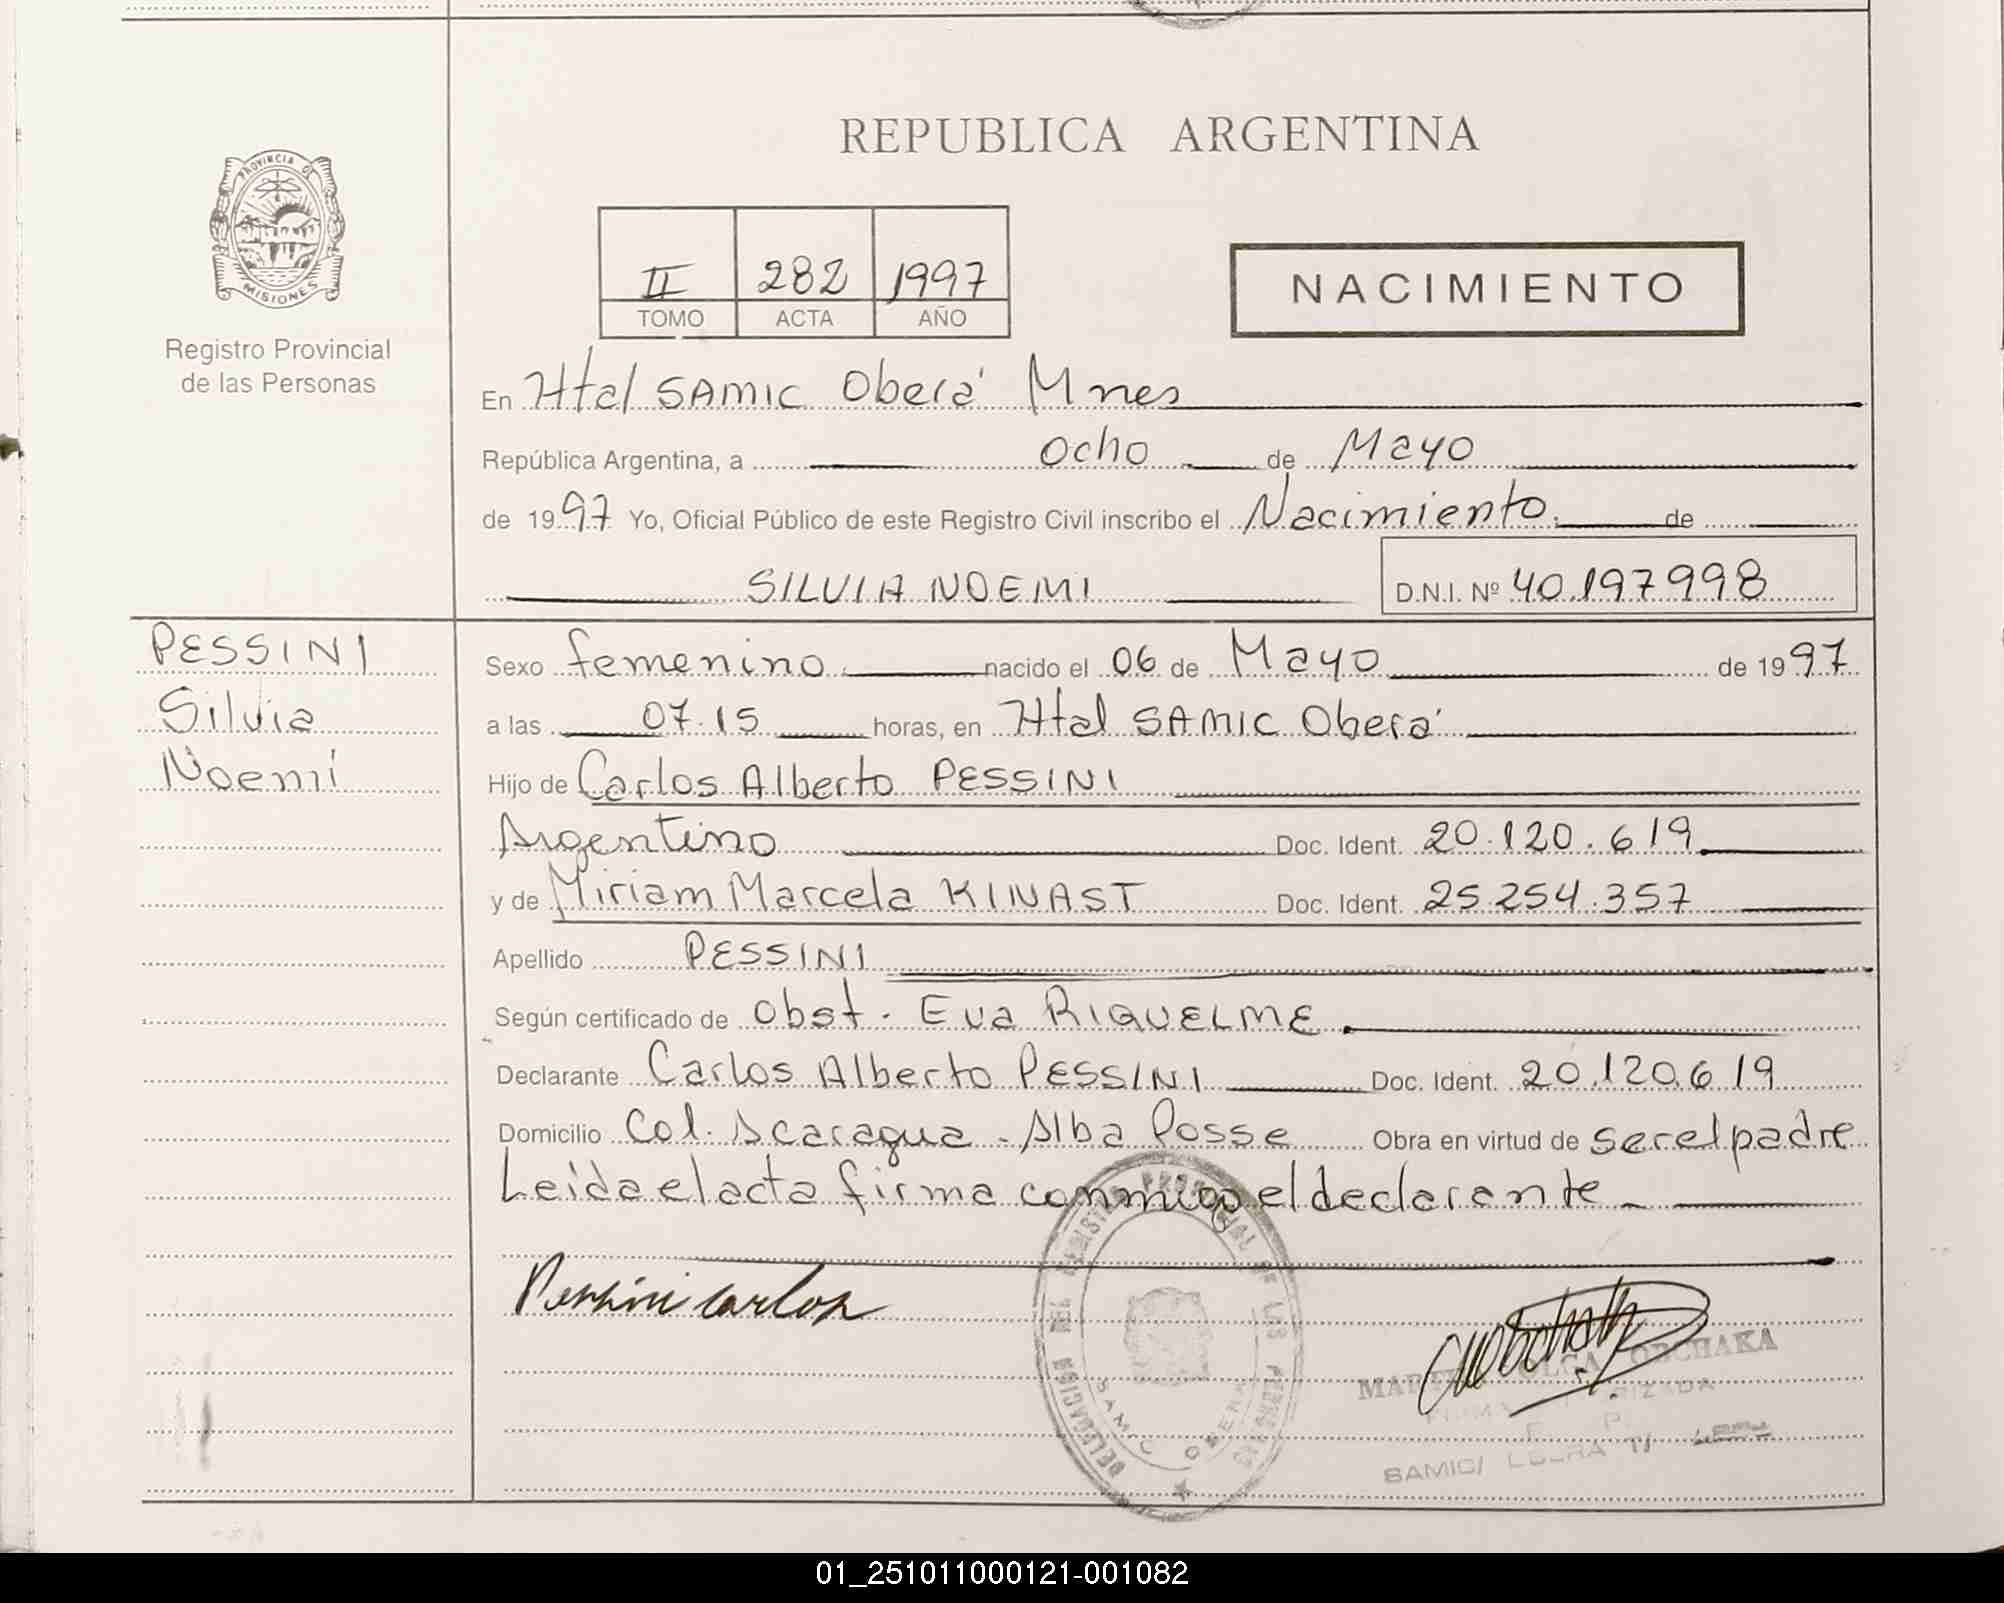 REPUBLICA ARGENTINA
PROVINCIA DE
MISIONES
Registro Provincial
de las Personas
II 282 1997
TOMO ACTA AÑO
NACIMIENTO
En Htal SAMIC Oberá Mnes
República Argentina, a Ocho de Mayo
de 1997 Yo, Oficial Público de este Registro Civil inscribo el Nacimiento de
SILVIA NOEMI D.N.I. Nº 40.197998
PESSINI
Silvia
Noemí
Sexo femenino nacido el 06 de Mayo de 1997
a las 07.15 horas, en Htal SAMIC Oberá
Hijo de Carlos Alberto PESSINI
Argentino Doc. Ident. 20.120.619
y de Miriam Marcela KINAST Doc. Ident. 25.254.357
Apellido PESSINI
Según certificado de Obst. Eva RIQUELME
Declarante Carlos Alberto PESSINI Doc. Ident. 20.120.619
Domicilio Col. Acaragua - Alba Posse Obra en virtud de ser el padre
Leída el acta firma conmigo el declarante
Pessini Carlos
DELEGACION DEL REGISTRO PROVINCIAL DE LAS PERSONAS
SAMIC OBERA
OLGA OBCHAKA
SAMIC/
01_251011000121-001082